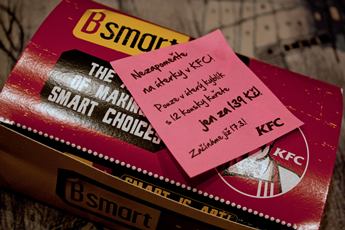 Bsmart
THE
OF MAKING
SMART CHOICES
Nezapomeňte
na úterky v KFC!
Pouze v úterý kyblík
s 12 kousky kuřete
jen za 139 Kč!
Začínáme již 17.3!
KFC
KFC
Bsmart
SMART IS ART